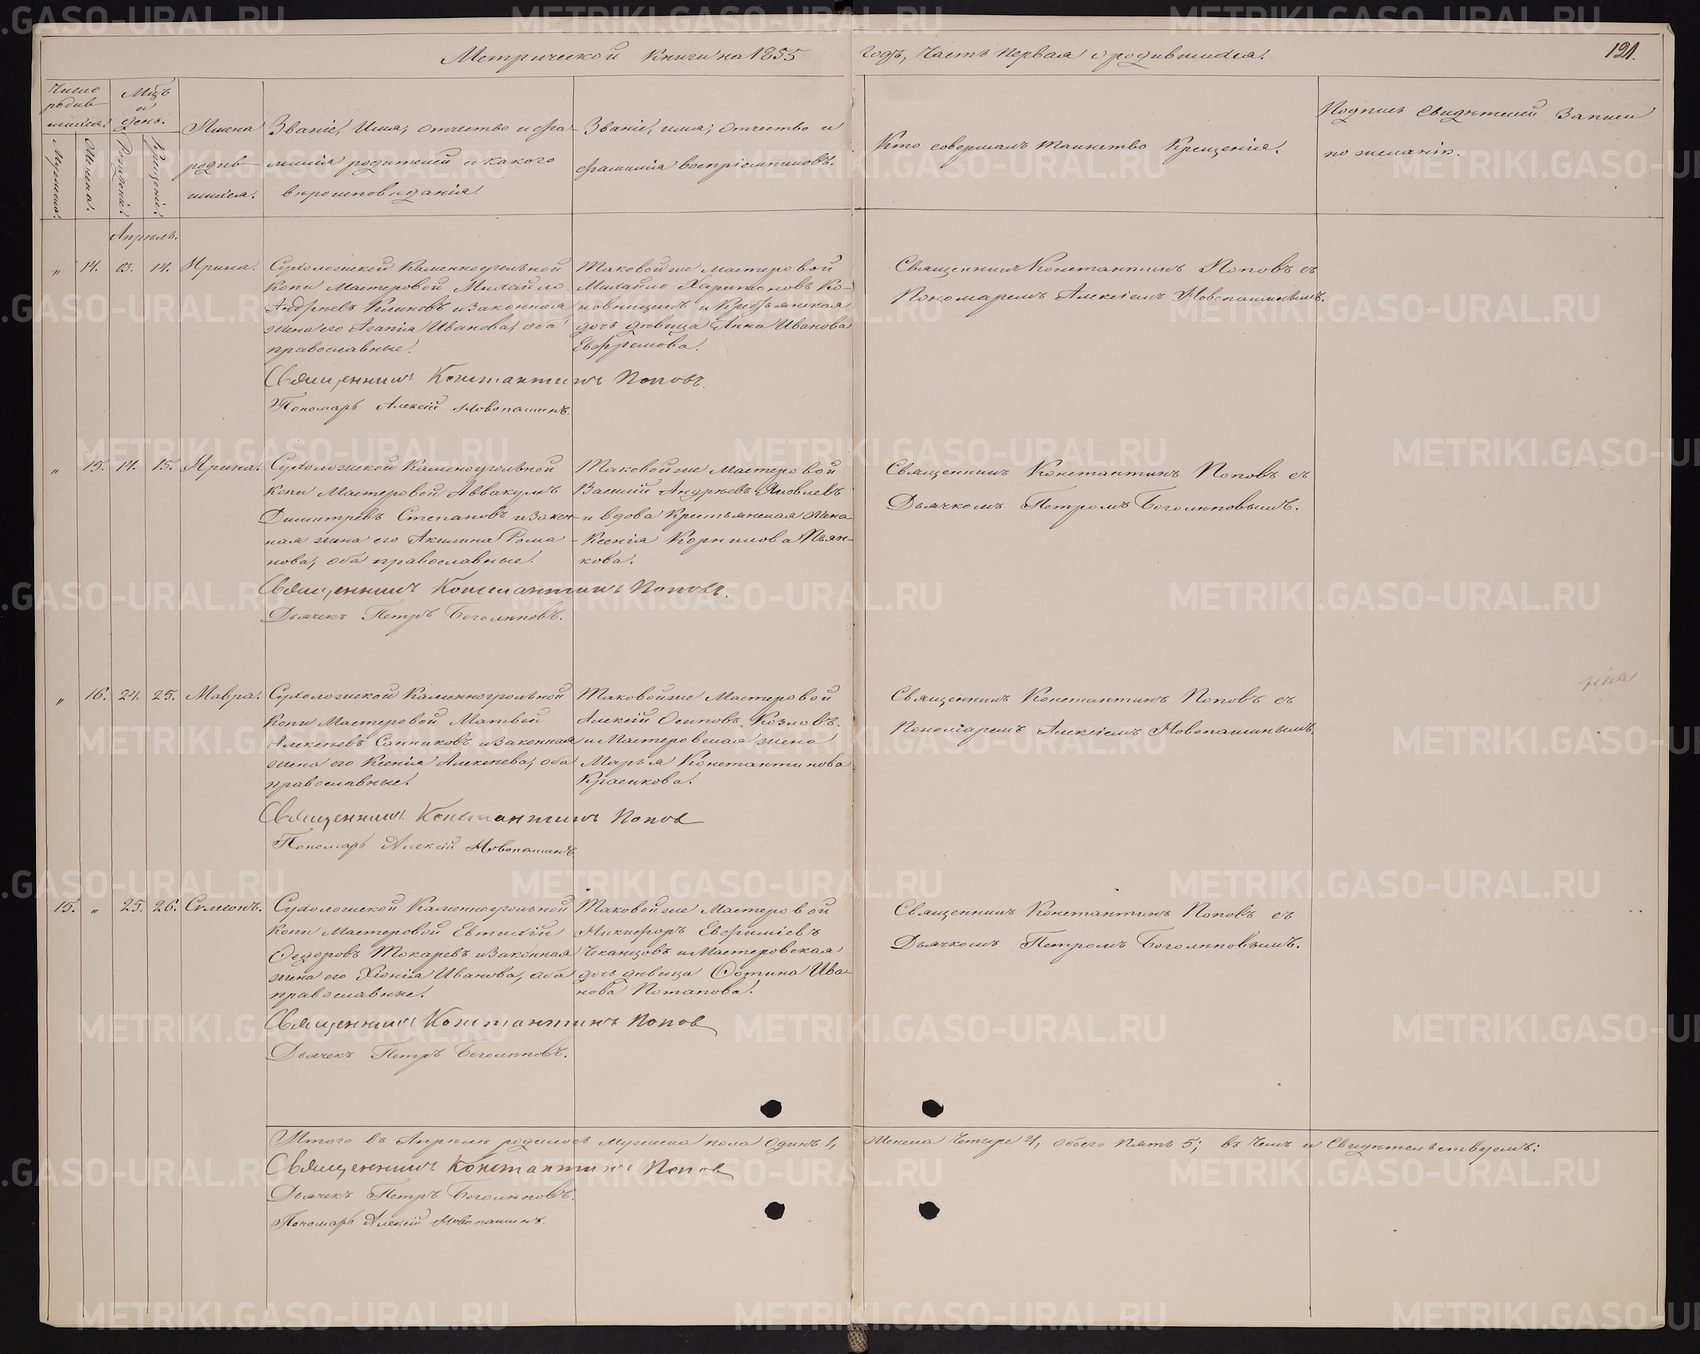 Метрической Книги на 1885 годъ, Часть Первая о родившихся.
121.
Число родив-шихся.
Мѣцъ и день.
Мужеска.
Женска.
Рожденія.
Крещенія.
Имена родив-шихся.
Званіе, Имя, отчество и фа-
милія родителей и какого
вѣроисповѣданія.
Званіе, имя, отчество и
фамилія воспріемниковъ.
Кто совершалъ таинство Крещенія.
Подпись свидѣтелей записи
по желанію.
Апрѣль.
" 14. 13. 14. Ирина.
Сухоложской Каменноугольной
Копи Мастеровой Михайло
Андреевъ и законная
жена его Агапія Иванова, оба
православные.
Таковой же мастеровой
Михайло Харитоновъ Ко-
новницинъ и Крестьянская
дочь дѣвица Анна Иванова
Ефремова.
Священникъ Константинъ Поповъ съ
Пономаремъ Алексіемъ Новопашинымъ.
Священникъ Константинъ Поповъ.
Пономарь Алексій Новопашинъ.
" 15. 14. 15. Ирина.
Сухоложской Каменноугольной
Копи Мастеровой Аввакумъ
Димитріевъ Степановъ и закон-
ная жена его Акилина Рома-
нова, оба православные.
Таковой же Мастеровой
Василій Андреевъ Яковлевъ
и вдова Крестьянская жена
Ксенія Корнилова Пьян-
кова.
Священникъ Константинъ Поповъ съ
Дьячкомъ Петромъ Боголюповымъ.
Священникъ Константинъ Поповъ.
Дьячекъ Петръ Боголюповъ.
" 16. 24. 25. Мавра.
Сухоложской Каменноугольной
Копи Мастеровой Матвей
Алексѣевъ Санниковъ и законная
жена его Ксенія Алексѣева, оба
православные.
Таковой же Мастеровой
Алексій Осиповъ Козловъ
и Мастеровская жена
Марья Константинова
Красикова.
Священникъ Константинъ Поповъ съ
Пономаремъ Алексіемъ Новопашинымъ.
Священникъ Константинъ Попов
Пономарь Алексій Новопашинъ
15. " 25. 26. Симеонъ.
Сухоложской Каменноугольной
Копи Мастеровой Евтихій
Федоровъ Токаревъ и законная
жена его Хіонія Иванова, оба
православные.
Таковой же Мастеровой
Никифоръ Евфиміевъ
Чеканцовъ и Мастеровская
дочь дѣвица Фотина Ива-
нова Потапова.
Священникъ Константинъ Поповъ съ
Дьячкомъ Петромъ Боголюповымъ.
Священникъ Константинъ Попов
Дьячекъ Петръ Боголюповъ.
Итого въ Апрѣлѣ родилось мужеска пола Одинъ 1, Женска Четыре 4, обоего Пять 5; въ чемъ и Свидѣтельствуемъ:
Священникъ Константинъ Попов
Дьячекъ Петръ Боголюповъ.
Пономарь Алексій Новопашинъ.
METRIKI.GASO-URAL.RU